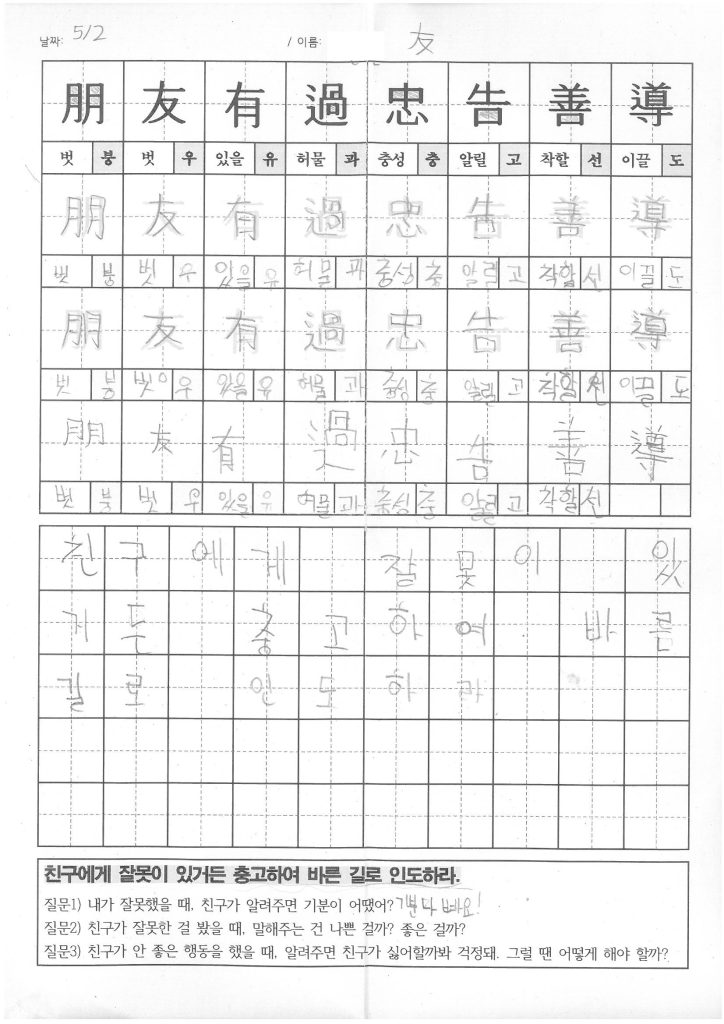 날짜: 5/2 / 이름: 友
朋 友 有 過 忠 告 善 導
벗 붕 벗 우 있을 유 허물 과 충성 충 알릴 고 착할 선 이끌 도
朋 友 有 過 忠 告 善 導
벗 붕 벗 우 있을 유 허물 과 충성 충 알릴 고 착할 선 이끌 도
朋 友 有 過 忠 告 善 導
벗 붕 벗 우 있을 유 허물 과 충성 충 알릴 고 착할 선 이끌 도
朋 友 有 過 忠 告 善 導
벗 붕 벗 우 있을 유 허물 과 충성 충 알릴 고 착할 선
친구에게 잘못이 있
거든 충고하여 바른
길로 인도하라
친구에게 잘못이 있거든 충고하여 바른 길로 인도하라.
질문1) 내가 잘못했을 때, 친구가 알려주면 기분이 어땠어?
질문2) 친구가 잘못한 걸 봤을 때, 말해주는 건 나쁜 걸까? 좋은 걸까?
질문3) 친구가 안 좋은 행동을 했을 때, 알려주면 친구가 싫어할까봐 걱정돼. 그럴 땐 어떻게 해야 할까?